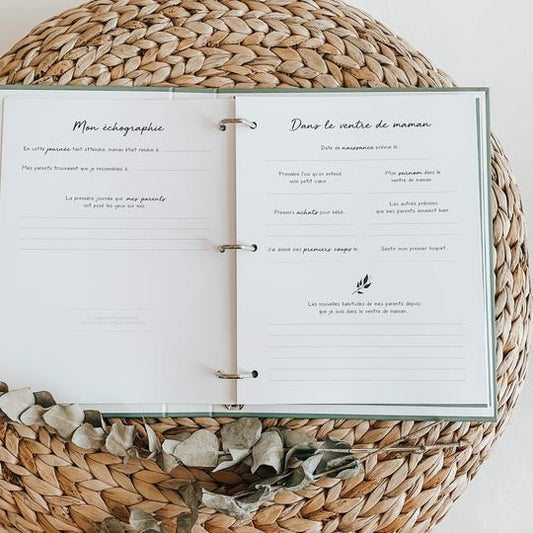 Mon échographie
En cette journée tant attendue, maman était rendue à
Mes parents trouvaient que je ressemblais à
La première journée que mes parents
ont posé les yeux sur moi...
Dans le ventre de maman
Date de naissance prévue le...
Première fois qu'on entend
mon petit cœur...
Mon surnom dans le
ventre de maman...
Premiers achats pour bébé...
Les autres prénoms
que mes parents aimaient bien...
J'ai donné mes premiers coups le...
Sentir mon premier hoquet...
Les nouvelles habitudes de mes parents depuis
que je suis dans le ventre de maman...